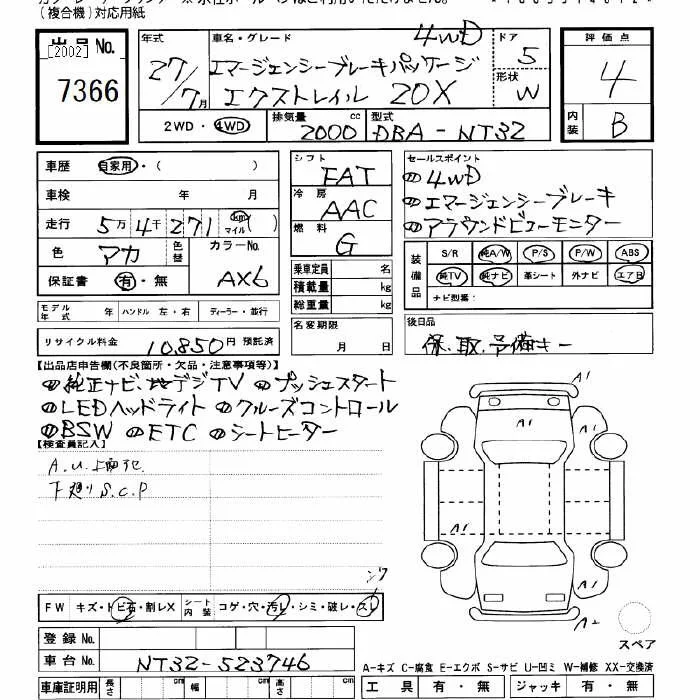 (複合機)対応用紙
出品No.
[2002]
7366
年式
27/7月
車名・グレード
4WD
エマージェンシーブレーキパッケージ
エクストレイル 20X
ドア
5
形状
W
評価点
4
内装
B
2WD・4WD
排気量
2000 cc
型式
DBA-NT32
車歴 自家用・( )
車検 年 月
走行 5万4千271 km マイル ( )
色 アカ 色替
カラーNo.
AX6
保証書 有・無
モデル年式 年 ハンドル 左・右 ディーラー・並行
リサイクル料金 10,850円 預託済
シフト
FAT
冷房
AAC
燃料
G
乗車定員 名
積載量 kg
総重量 kg
名変期限
月 日
セールスポイント
4WD
エマージェンシーブレーキ
アラウンドビューモニター
装備品
S/R 純A/W P/S P/W ABS
純TV 純ナビ 革シート 外ナビ エアB
ナビ型番:
後日品
保、取、予備キー
【出品店申告欄(不良箇所・欠品・注意事項等)】
純正ナビ地デジTV プッシュスタート
LEDヘッドライト クルーズコントロール
BSW ETC シートヒーター
【検査員記入】
A.U.上面他
下廻りS.C.P
FW キズ・トビ石・割レX シート内装 コゲ・穴・汚レ・シミ・破レ・スレ
登録No.
車台No. NT32-523746
車庫証明用 長さ cm 幅 cm 高さ cm
A1
A1
A1
A1
A1
A1
A2
スペア
A-キズ C-腐食 E-エクボ S-サビ U-凹ミ W-補修 XX-交換済
工具 有・無 ジャッキ 有・無